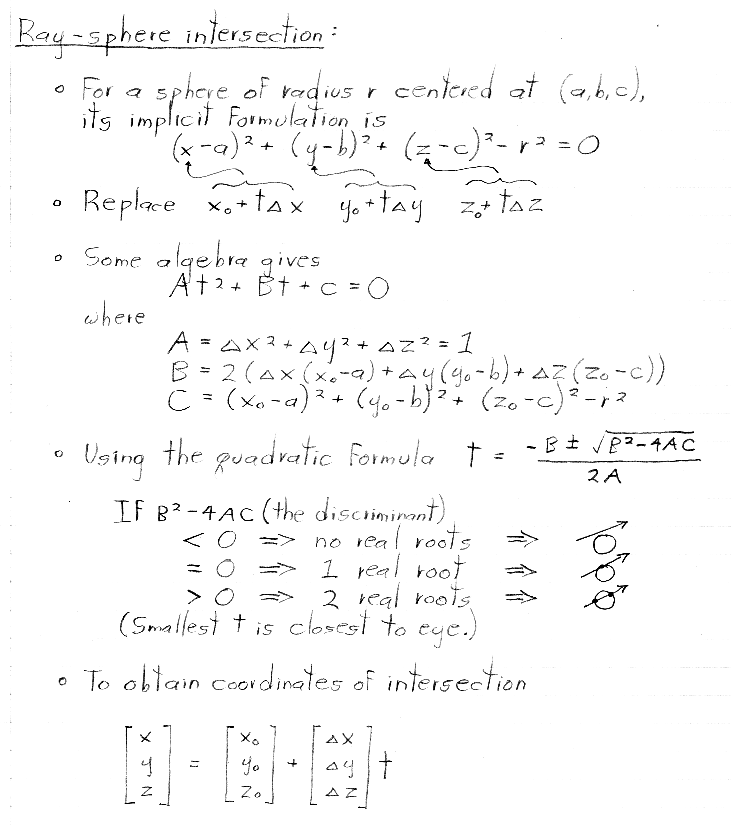 Ray-sphere intersection:
∘ For a sphere of radius r centered at (a,b,c),
its implicit formulation is
(x-a)² + (y-b)² + (z-c)² - r² = 0
∘ Replace x₀+t△x y₀+t△y z₀+t△z
∘ Some algebra gives
At² + Bt + c = 0
where
A = △x² + △y² + △z² = 1
B = 2(△x(x₀-a) + △y(y₀-b) + △z(z₀-c))
C = (x₀-a)² + (y₀-b)² + (z₀-c)² - r²
∘ Using the quadratic formula t = (-B ± √(B²-4AC)) / 2A
If B²-4AC (the discriminant)
< 0 => no real roots =>
= 0 => 1 real root =>
> 0 => 2 real roots =>
(Smallest t is closest to eye.)
∘ To obtain coordinates of intersection
[x] = [x₀] + [△x]
[y] = [y₀] + [△y] t
[z] = [z₀] + [△z]